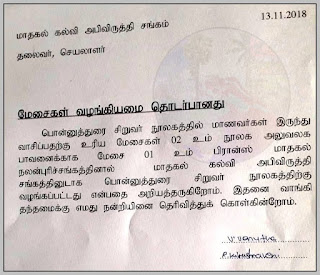 13.11.2018
மாதகல் கல்வி அபிவிருத்தி சங்கம்
தலைவர், செயலாளர்
மேசைகள் வழங்கியமை தொடர்பானது
பொன்னுத்துரை சிறுவர் நூலகத்தில் மாணவர்கள் இருந்து
வாசிப்பதற்கு உரிய மேசைகள் 02 உம் நூலக அலுவலக
பாவனைக்காக மேசை 01 உம் பிரான்ஸ் மாதகல்
நலன்புரிச்சங்கத்தினால் மாதகல் கல்வி அபிவிருத்தி
சங்கத்தினூடாக பொன்னுத்துரை சிறுவர் நூலகத்திற்கு
வழங்கப்பட்டது என்பதை அறியத்தருகிறோம். இதனை வாங்கி
தந்தமைக்கு எமது நன்றியினை தெரிவித்துக் கொள்கின்றோம்.